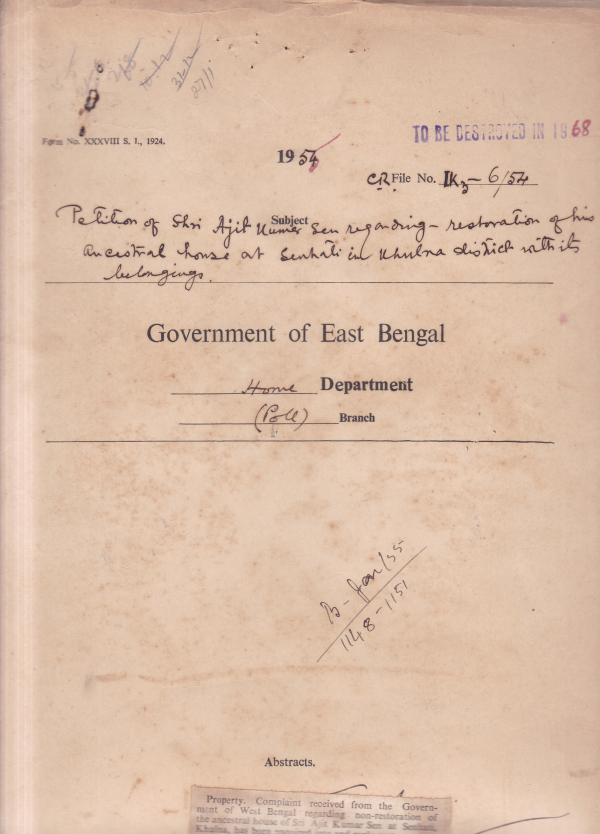 27/1
Form No. XXXVIII S. I., 1924.
TO BE DESTROYED IN 1968
1954
C.R. File No. IK3-6/54
Subject
Petition of Shri Ajit Kumar Sen regarding - restoration of his
ancestral house at Senhati in Khulna district with its
belongings.
Government of East Bengal
Home Department
(Poll) Branch
B - Jan/55
1148-1151
Abstracts.
Property. Complaint received from the Govern-
ment of West Bengal regarding non-restoration of
the ancestral house of Sri Ajit Kumar Sen at Senhati,
Khulna, has been